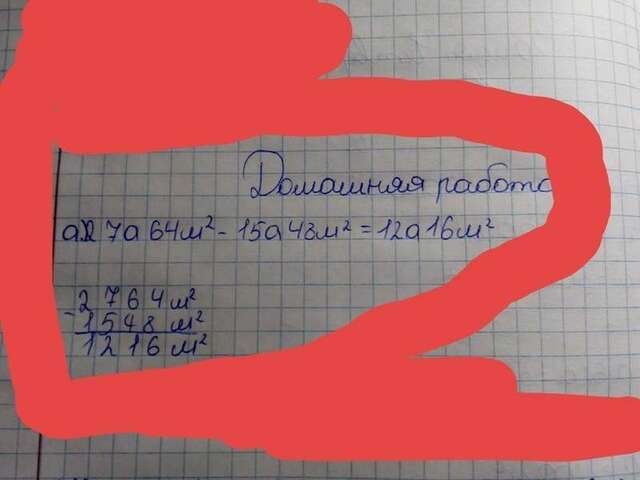 Домашняя работа
а) 27а 64м² - 15а 48м² = 12а 16м²
2 7 6 4 м²
- 1 5 4 8 м²
1 2 1 6 м²